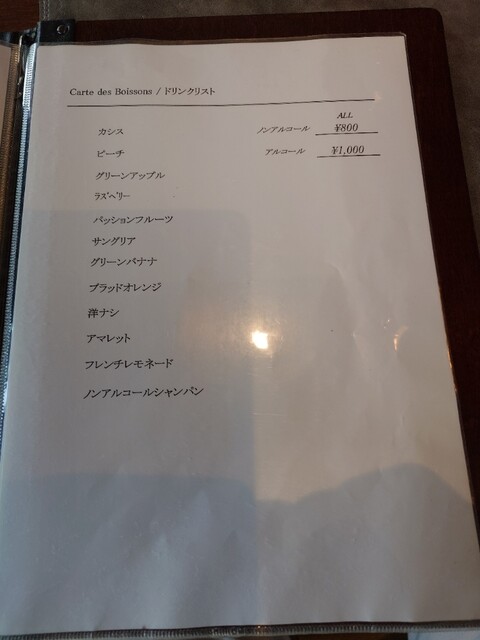 Carte des Boissons / ドリンクリスト
ALL
カシス ノンアルコール ¥800
ピーチ アルコール ¥1,000
グリーンアップル
ラズベリー
パッションフルーツ
サングリア
グリーンバナナ
ブラッドオレンジ
洋ナシ
アマレット
フレンチレモネード
ノンアルコールシャンパン